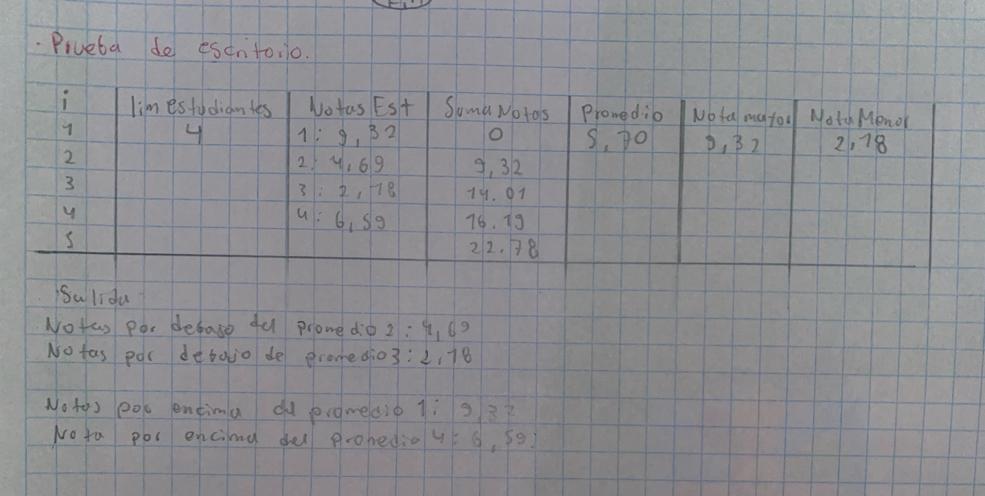 - Prueba de escritorio.
i | lim estudiantes | Notas Est | Suma Notas | Promedio | Nota mayor | Nota Menor
1 | 4 | 1: 9,32 | 0 | 5,70 | 9,32 | 2,18
2 | | 2: 4,69 | 9,32
3 | | 3: 2,18 | 14.01
4 | | 4: 6,59 | 16.19
5 | | | 22.78
Salida
Notas por debajo del promedio 2: 4,69
Notas por debajo de promedio 3: 2,18
Notas por encima del promedio 1: 9,32
Nota por encima del promedio 4: 6,59.